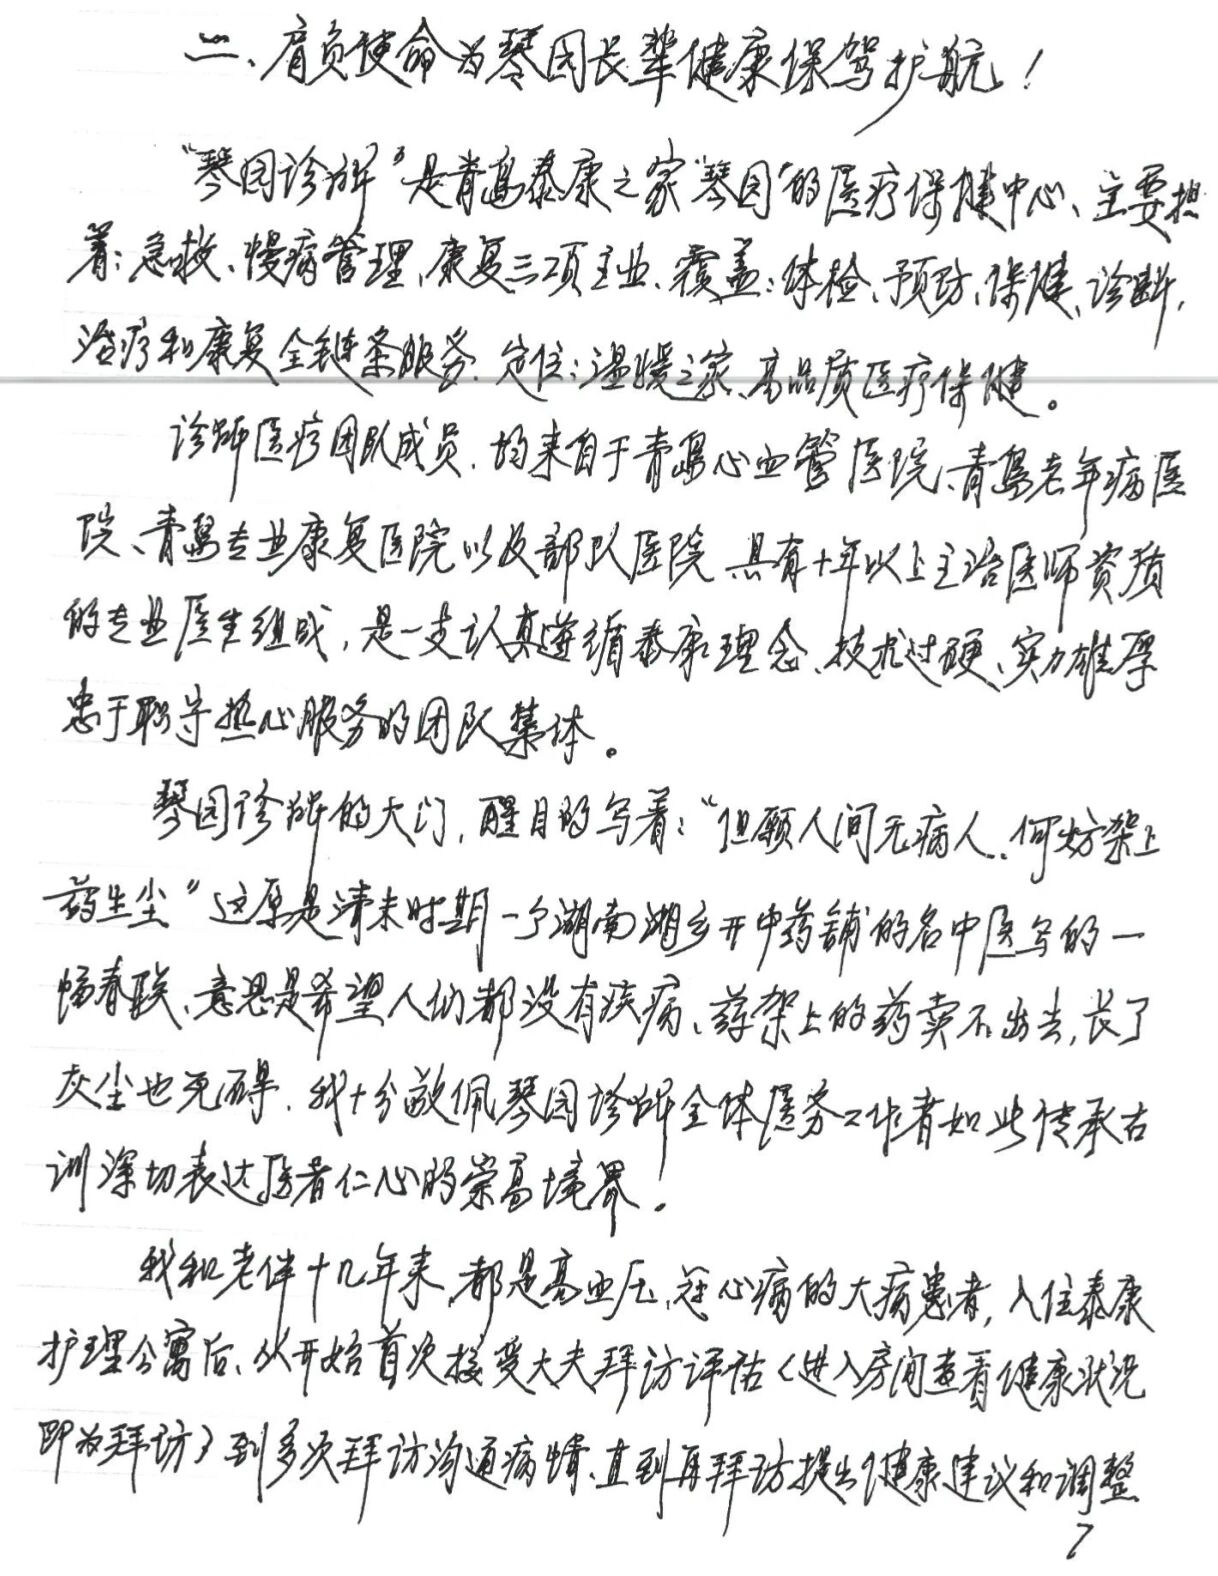 二、肩负使命为琴园长辈健康保驾护航！
“琴园诊所”是青岛泰康之家“琴园”的医疗保健中心、主要担
着：急救、慢病管理、康复三项主业、覆盖：体检、预防、保健、诊断，
治疗和康复全链条服务. 定位：温暖之家、高品质医疗保健。
诊所医疗团队成员．均来自于青岛心血管医院、青岛老年病医
院、青岛专业康复医院以及部队医院 具有十年以上主治医师资质
的专业医生组成，是一支认真遵循泰康理念、技术过硬、实力雄厚
忠于职守热心服务的团队集体。
琴园诊所的大门，醒目的写着：“但愿人间无病人．何妨架上
药生尘”这原是清末时期一个湖南湘乡开中药铺的名中医写的一
幅春联、意思是希望人们都没有疾病、药架上的药卖不出去，长了
灰尘也无碍．我十分敬佩琴园诊所全体医务工作者如此传承古
训深切表达医者仁心的崇高境界。
我和老伴十几年来，都是高血压、冠心病的大病患者，入住泰康
护理公寓后、从开始首次接受大夫拜访评估（进入房间查看健康状况
即为拜访）到多次拜访沟通病情、直到再拜访提出健康建议和调整
7